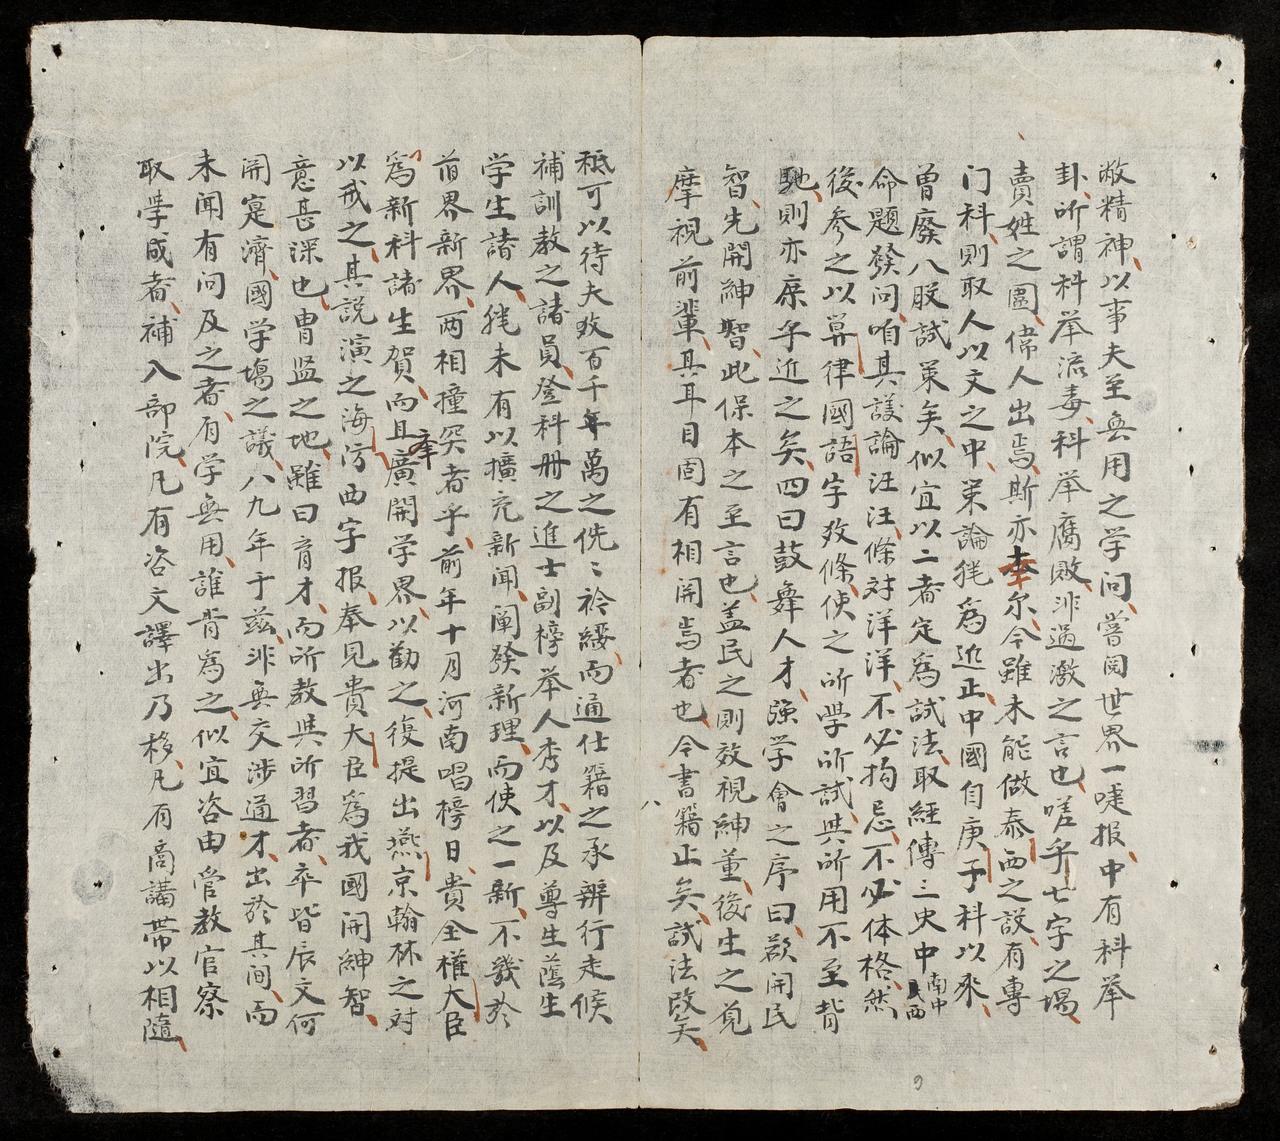 敝精神、以事夫至無用之学問、嘗閱世界一㨗报、中有科举
卦、所謂科举流毒、科举腐敗、非過激之言也、嗟乎七字之場、
賣姓之圖、偉人出焉、斯亦幸尔、今雖未能做泰西之説、有專
门科、則取人以文之中、策論𬋩為近正、中國自庚子科以來、
曾廢八股試策矣、似宜以二者定為試法、取經傳三史中南中民西
命題發問、咱其議論汪汪、條对洋洋、不必拘忌、不必体格、然
後參之以算律國語字数條、使之所學所試、與所用不至背
馳、則亦庶乎近之矣、四曰鼓舞人才、強学會之序曰、欲開民
智、先開紳智、此保本之至言也、盖民之則效視紳董、後生之覓
摩視前輩、其耳目固有相関焉者也、今書籍止矣、試法改矣、
八
祗可以待夫数百千年萬之侁〻衿綬、而通仕籍之承辨行走候
補訓教之諸員、登科册之進士副榜举人秀才、以及尊生蔭生
学生諸人、𬋩未有以擴充新闻、阐發新理、而使之一新、不幾於
旧界新界、两相撞突者乎、前年十月河南唱榜日、貴全權大臣
為新科諸生賀、而且廣開学界、以勸之、復提出燕京翰林之对
以戒之、其説演之海防西字报、奉見貴大臣為我國開紳智、
意甚深也、胄监之地、雖曰育才、而所教與所習者、卒皆辰文何
開寔濟、國学場之議、八九年于兹、非無交涉通才、出於其间、而
未闻有问及之者、有学無用、誰肯為之、似宜咨由管教官察
取學成者、補入部院、凡有咨文譯出乃移、凡有商講帶以相隨、
9